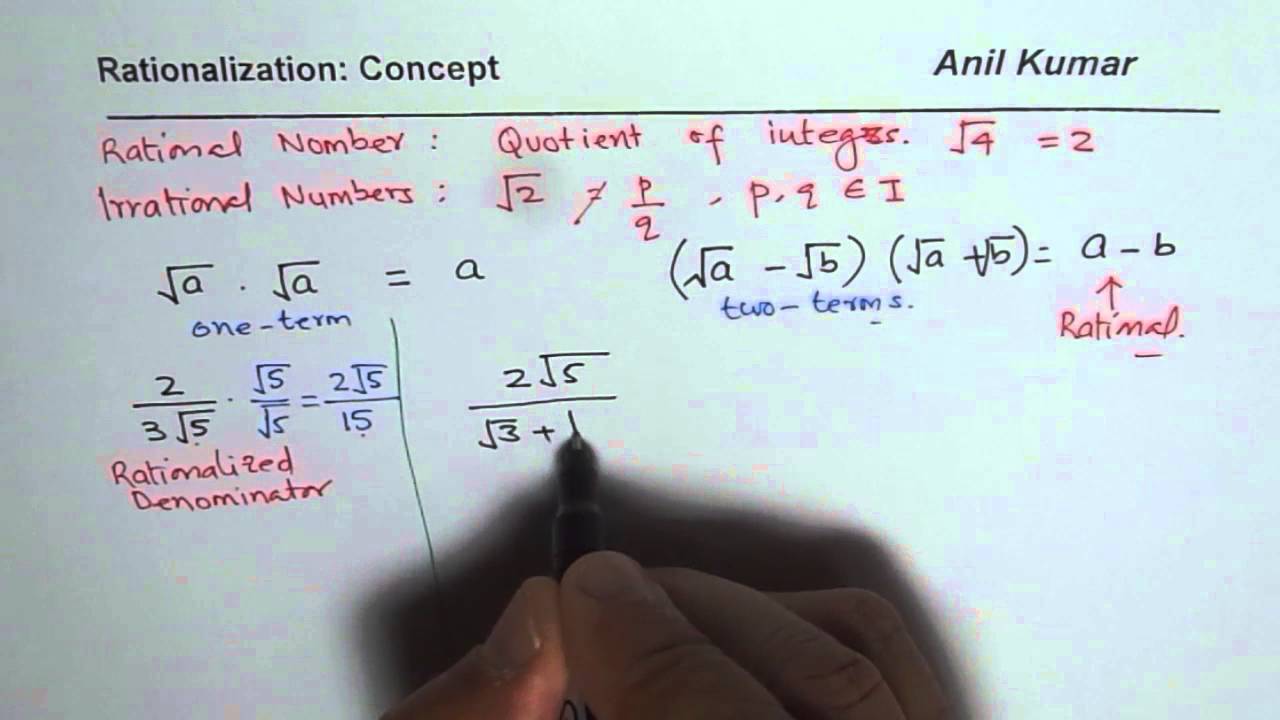 Rationalization: Concept Anil Kumar
Rational Nomber : Quotient of integers. √4 = 2
Irrational Numbers : √2 ≠ p/q , p, q ∈ I
√a · √a = a (√a - √b) (√a + √b) = a - b
one-term two-terms.
↑
Rational.
2/3√5 · √5/√5 = 2√5/15 2√5/√3 +
Rationalized
Denominator